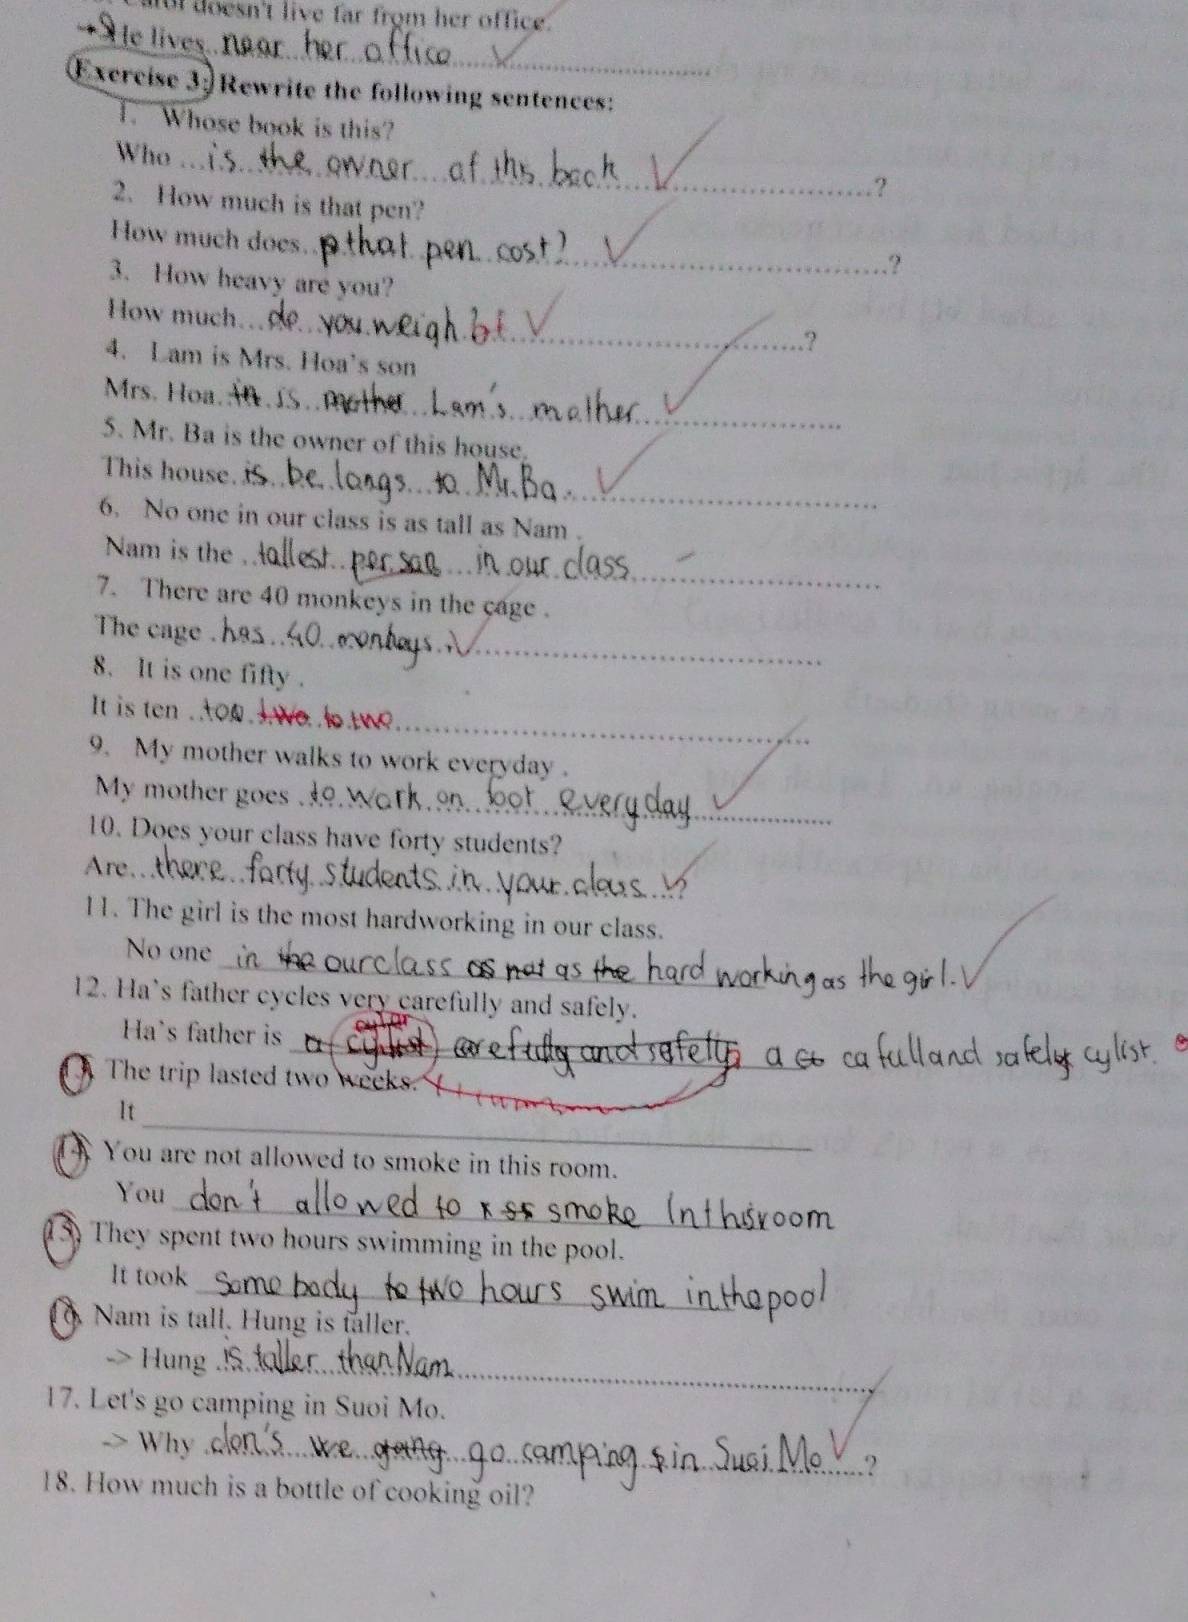 doesn't live far from her office.
He lives near her office
Exercise 3: Rewrite the following sentences:
1. Whose book is this?
Who is the owner of this book ?
2. How much is that pen?
How much does that pen cost? ?
3. How heavy are you?
How much do you weigh ?
4. Lam is Mrs. Hoa's son
Mrs. Hoa is mother Lam's mother
5. Mr. Ba is the owner of this house.
This house is be longs to Mr. Ba.
6. No one in our class is as tall as Nam .
Nam is the tallest person in our class
7. There are 40 monkeys in the cage .
The cage has 40 monkeys.
8. It is one fifty .
It is ten to two to two
9. My mother walks to work everyday .
My mother goes to work on foot every day
10. Does your class have forty students?
Are there forty students in your class ?
11. The girl is the most hardworking in our class.
No one in the our class as not as the hard working as the girl.
12. Ha's father cycles very carefully and safely.
Ha's father is a cyclist carefully and safelly a ca cafull and safely cylist.
The trip lasted two weeks.
It
14. You are not allowed to smoke in this room.
You don't allowed to smoke In this room
15. They spent two hours swimming in the pool.
It took Some body to two hours swim in the pool
Nam is tall. Hung is taller.
-> Hung is taller than Nam
17. Let's go camping in Suoi Mo.
-> Why don's we going go camping in Suoi Mo ?
18. How much is a bottle of cooking oil?